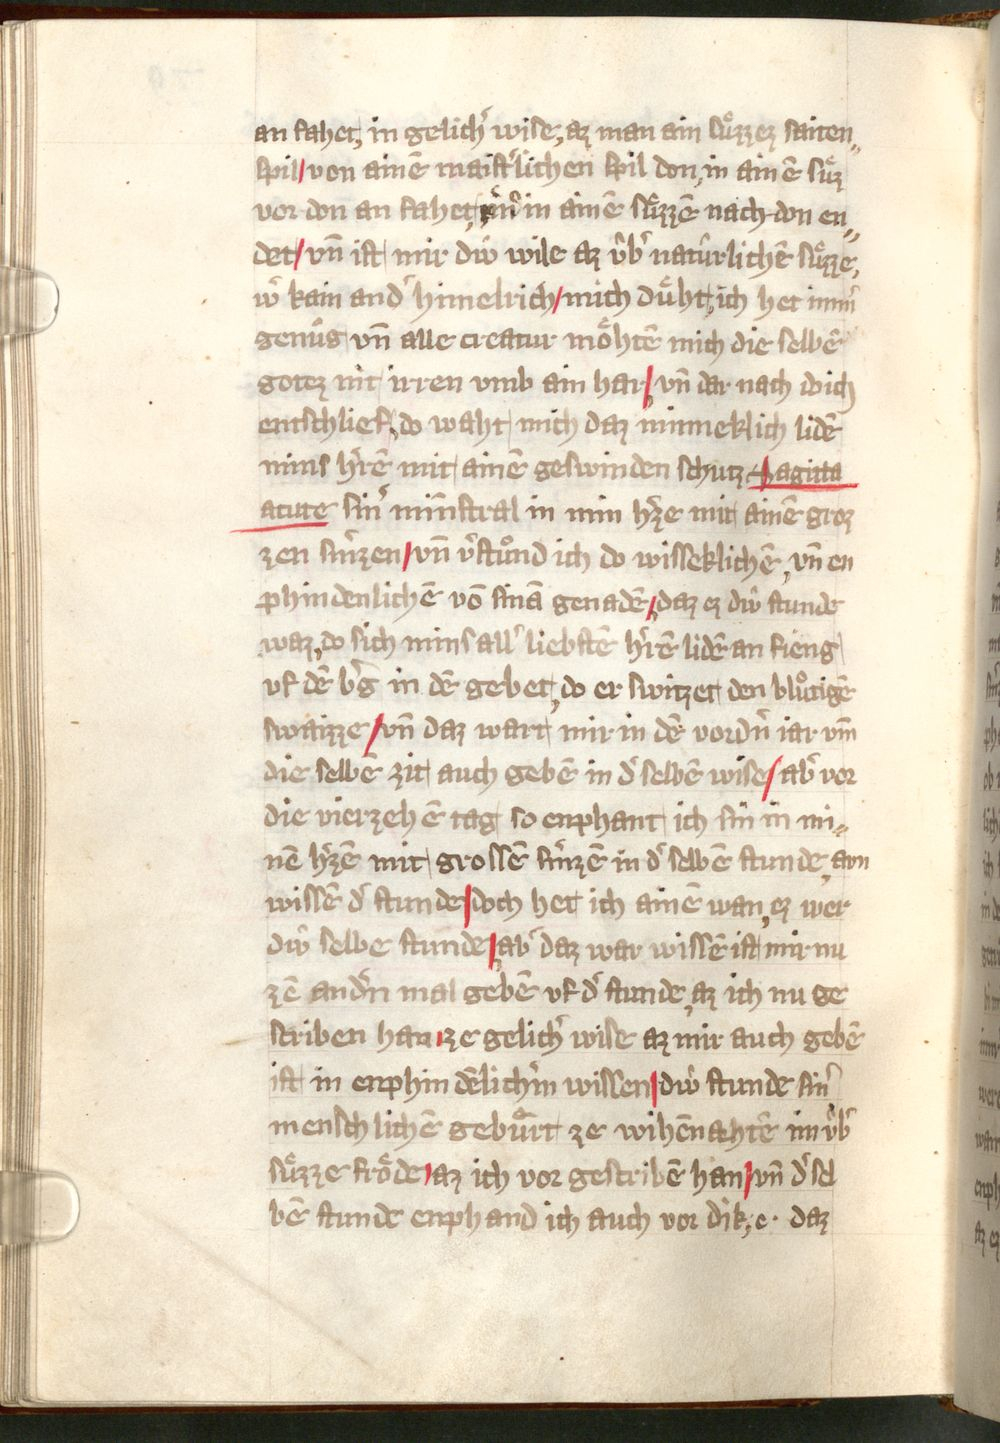 an fahet, in gelich᷒ wise, az man ain sůzzez saiten„
spil / von ainē maist᷒lichen spil don, in ainē sůz
vor don an fahet, vn̄ in ainē sůzzē nach don en„
det / vn̄ ist mir diw̄ wile az v̂b᷒ natûrlichē sůzze,
w᷒ kain and᷒ himelrich / mich dûht, ich het imm᷒
genûg vn̄ alle creatur mȯhtē mich die selbē
gotez nīt irren vmb ain har / vn̄ dar nach do ich
entschlief, do waht mich daz minneklich lidē
mins h᷒rē mit ainē geswinden schutz Sagitta
acute sin᷒ minstral in min h᷒ze mit ainē groz
zen sm᷒zen / vn̄ v᷒stůnd ich do wisseklichē, vn̄ en
phindenlichē vō sinā genadē, daz ez diw̄ stunde
waz, do sich mins all᷒ liebstē h᷒rē lidē an fieng
vf dē b᷒g in dē gebet, do er switzet den blůtigē
swaizze / vn̄ daz wart mir in dē vord᷒n iar vm̄
die selbē zit auch gebē in d᷒ selbē wise / ab᷒ vor
die vierzehē tag so enphant ich sin in mi„
nē h᷒zē mit grossē sm᷒zē in d᷒ selbē stunde, avn
wissē d᷒ stunde / doch het ich ainē wan, ez wer
diw̄ selbe stunde / ab᷒ daz war wissē ist mir nu
zē and᷒n mal gebē vf d᷒ stunde, az ich nu ge
scriben han / ze gelich᷒ wise az mir auch gebē
ist in enphindēlich᷒m wissen / diw̄ stunde sin᷒
menschlichē gebûrt ze wihēnahtē in v̂b᷒
sůzze frȯde / az ich vor gescribē han / vn̄ d᷒ sel
bē stunde enphand ich auch vor dik, e· daz